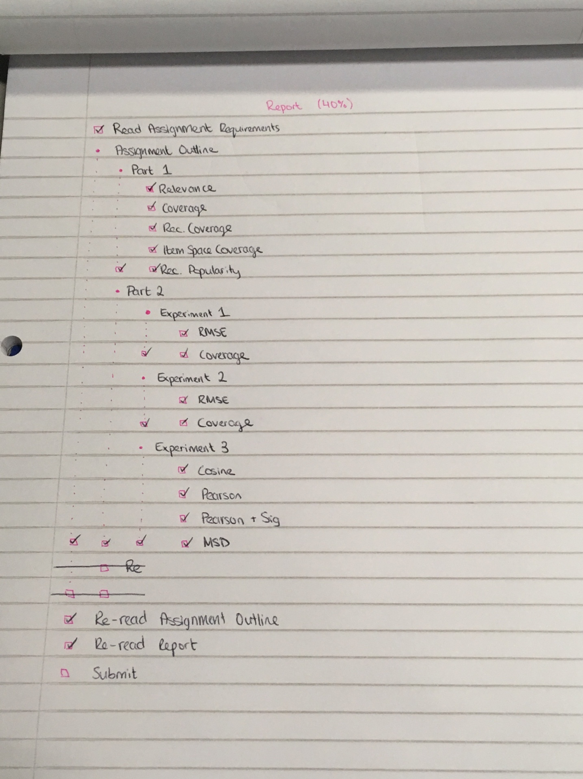 Report (40%)
Read Assignment Requirements
Assignment Outline
Part 1
Relevance
Coverage
Rec Coverage
Item Space Coverage
Rec. Popularity
Part 2
Experiment 1
RMSE
Coverage
Experiment 2
RMSE
Coverage
Experiment 3
Cosine
Pearson
Pearson + Sig
MSD
Re
Re-read Assignment Outline
Re-read Report
Submit